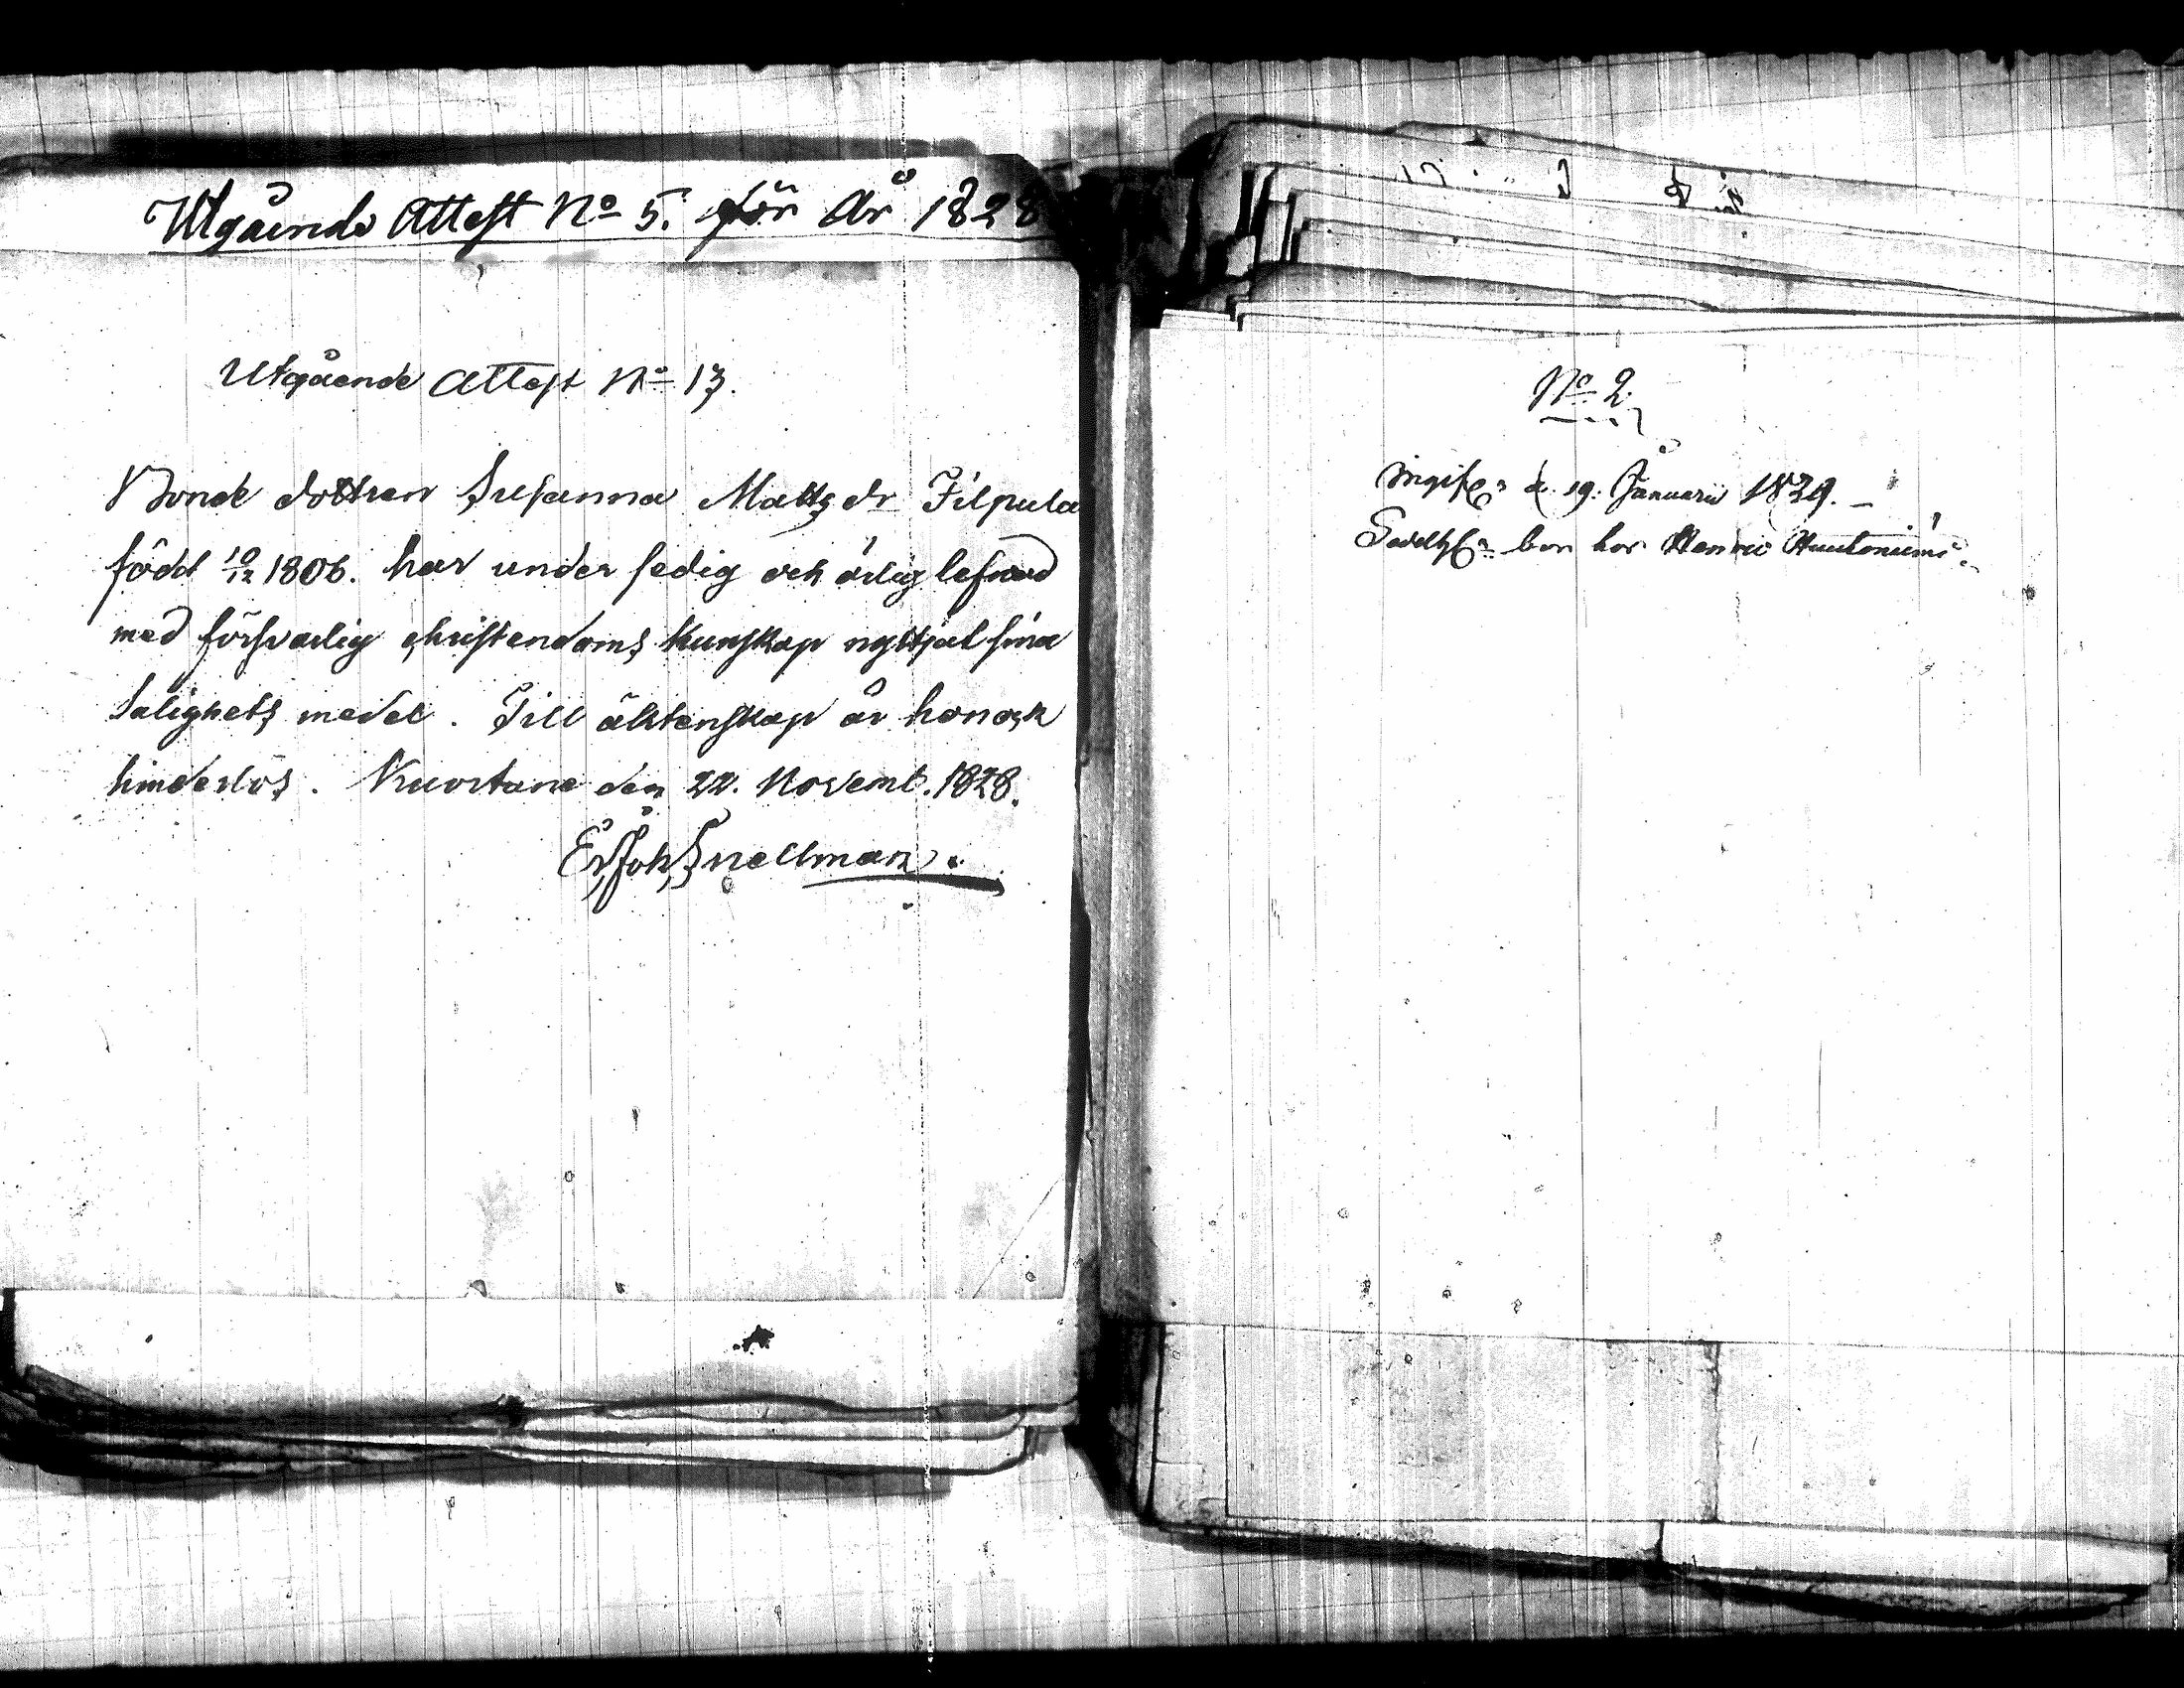 Utgående Attest No 5. för År 1828
Utgående Attest No 13.
Bonde dottren Susanna Mattsdr Filpula
född 10/12 1806. har under sedig och ärlig lefnad
med försvarlig christendoms kunskap nyttjat sina
Salighets medel. Till äktenskap är hon ock
hinderlös. Kuortane den 22. Novemb. 1828.
Er, Joh, Snellman.
No 2
d. 19. Januarii 1829.
bor hos Henric